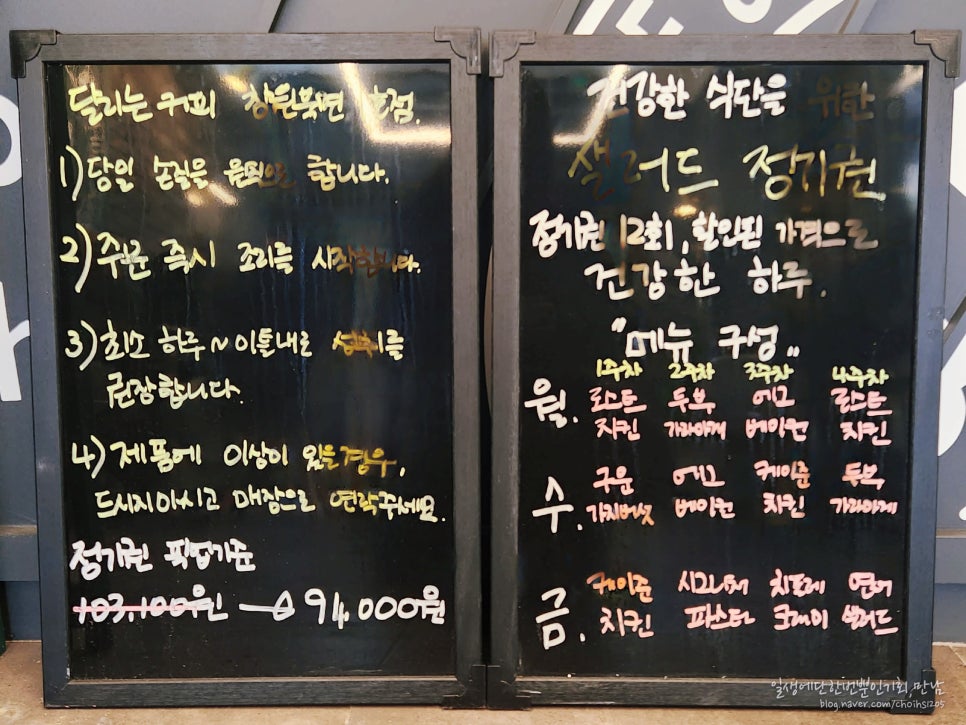 달리는 커피 창원북면 1호점.
1) 당일 손질을 원칙으로 합니다.
2) 주문 즉시 조리를 시작합니다.
3) 최소 하루~이틀내로 섭취를
권장합니다.
4) 제품에 이상이 있을 경우,
드시지마시고 매장으로 연락주세요.
정기권 픽업기준
103,100원 → 94,000원
건강한 식단을 위한
샐러드 정기권
정기권 12회, 할인된 가격으로
건강한 하루.
"메뉴 구성"
1주차 2주차 3주차 4주차
월. 로스트 두부 에그 로스트
치킨 가라아게 베이컨 치킨
수. 구운 에그 케이준 두부
가지버섯 베이컨 치킨 가라아게
금. 케이준 시그니처 치폴레 연어
치킨 파스타 쿠스쿠스 샐러드
일생에단한번뿐인기회,만남
blog.naver.com/choihs1205